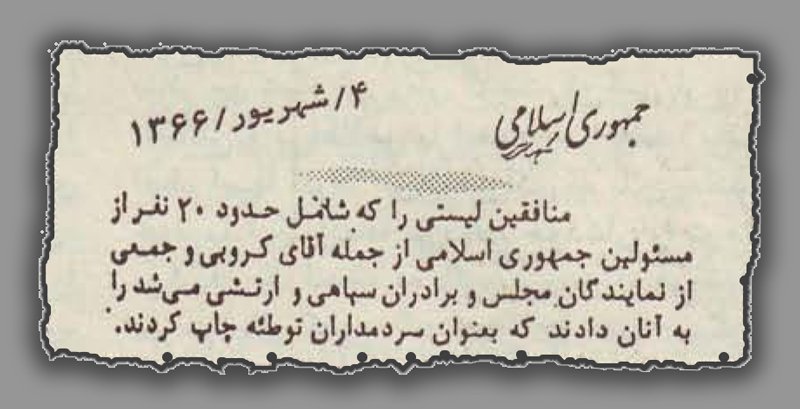 جمهوری اسلامی
۴/شهریور/۱۳۶۶
منافقین لیستی را که شامل حدود ۲۰ نفر از
مسئولین جمهوری اسلامی از جمله آقای کروبی و جمعی
از نمایندگان مجلس و برادران سپاهی و ارتشی می‌شد را
به آنان دادند که بعنوان سردمداران توطئه چاپ کردند.